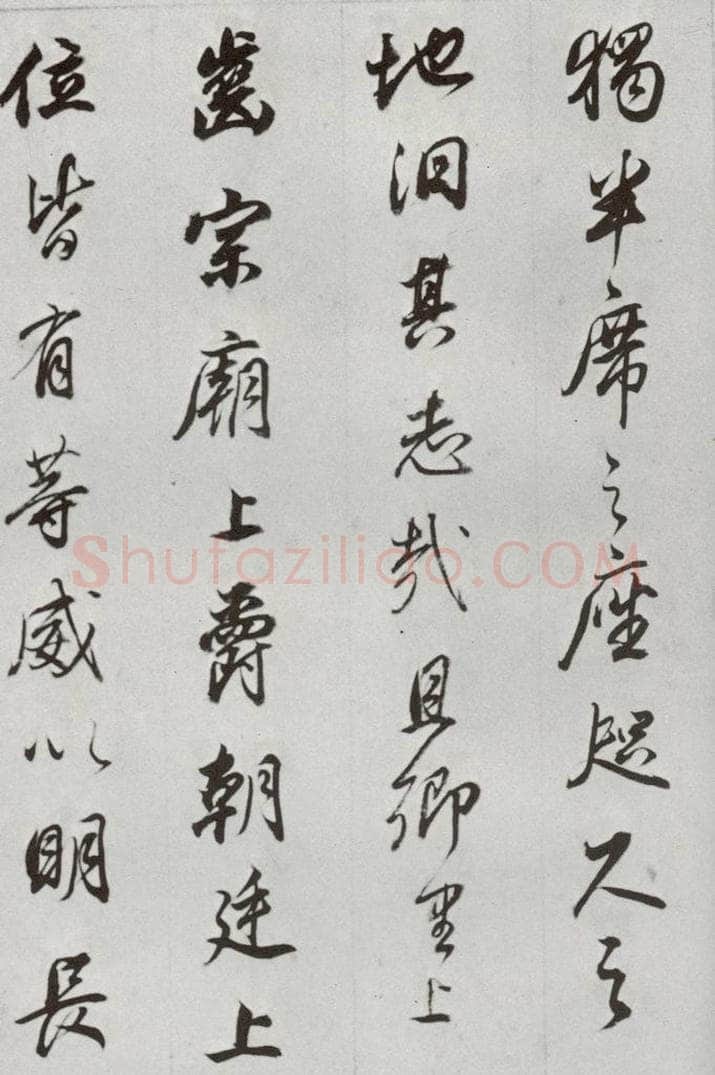 獨半席之座咫尺之
地汩其志哉且鄉里上
齒宗廟上爵朝廷上
位皆有等威以明長
Shufaziliao.COM